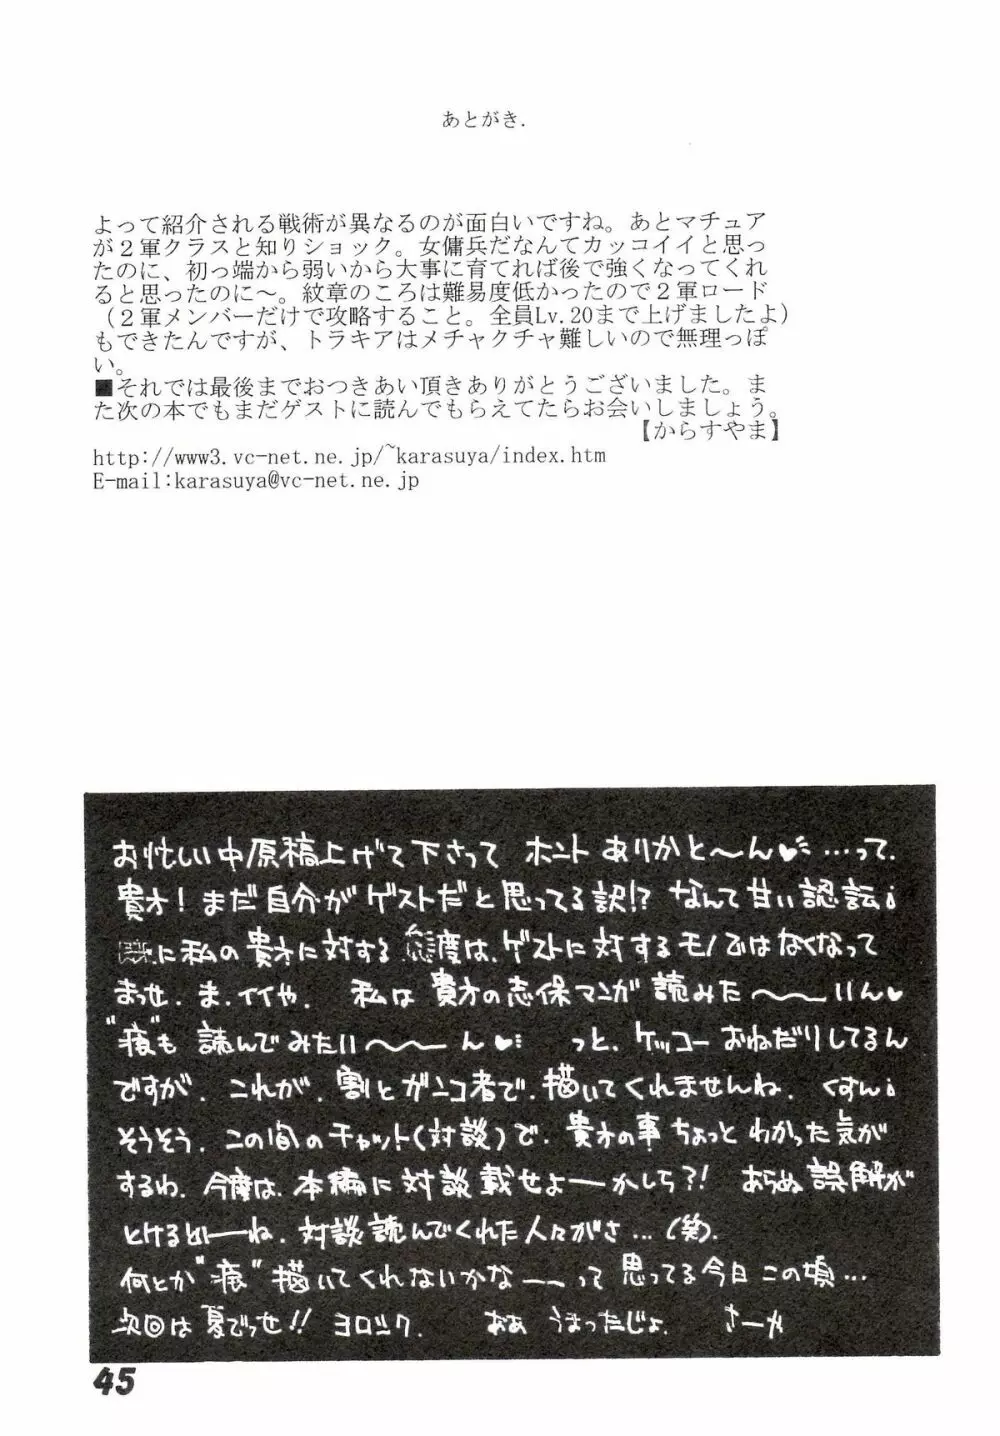 あとがき.
よって紹介される戦術が異なるのが面白いですね。あとマチュア
が２軍クラスと知りショック。女傭兵だなんてカッコイイと思っ
たのに、初っ端から弱いから大事に育てれば後で強くなってくれ
ると思ったのに～。紋章のころは難易度低かったので２軍ロード
（２軍メンバーだけで攻略すること。全員Lv.20まで上げましたよ）
もできたんですが、トラキアはメチャクチャ難しいので無理っぽ
い。
■それでは最後までおつきあい頂きありがとうございました。ま
た次の本でもまだゲストに読んでもらえてたらお会いしましょう。
【からすやま】
http://www3.vc-net.ne.jp/~karasuya/index.htm
E-mail:karasuya@vc-net.ne.jp
お忙しい中原稿上げて下さって ホント ありがと～ん♥…って.
貴方！まだ自分がゲストだと思ってる訳!? なんて甘い認
に私の貴方に対する態度は、ゲストに対するモノではなくなって
まっせ. ま. イイや. 私は貴方の志保マンガ読みた～～いん♥
"痕"も 読んでみたい～～ん♥ っと. ケッコーおねだりしてるん
ですが. これが. 割とガンコ者で. 描いてくれませんね. くすん
そうそう. この間のチャット(対談)で. 貴方の事ちょっとわかった気が
するわ. 今度は. 本編に対談載せよーかしら?! あらぬ誤解が
とけるとーね. 対談読んでくれた人々がさ…(笑).
何とか"痕"描いてくれないかなーーって思ってる今日この頃…
次回は夏でっせ!! ヨロシク. おあ うまったじょ. さーや
45